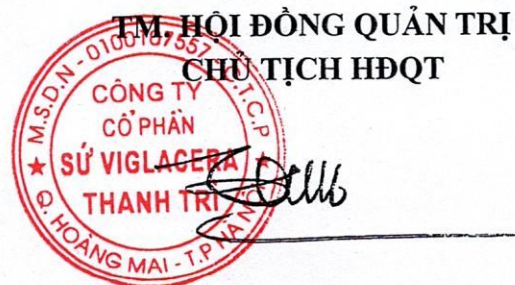 TM. HỘI ĐỒNG QUẢN TRỊ
CHỦ TỊCH HĐQT
M.S.D.N - 0100107557 - C.T.C.P
CÔNG TY
CỔ PHẦN
SỨ VIGLACERA
THANH TRÌ
Q. HOÀNG MAI - T.P HÀ NỘI